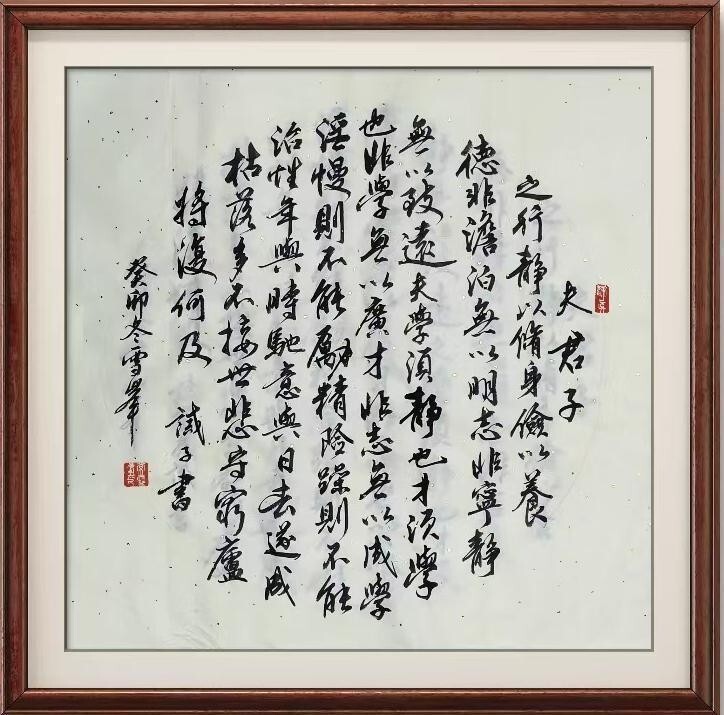 夫君子
之行靜以脩身儉以養
德非澹泊無以明志非寧靜
無以致遠夫學須靜也才須學
也非學無以廣才非志無以成學
淫慢則不能勵精險躁則不能
治性年與時馳意與日去遂成
枯落多不接世悲守窮廬
將復何及 誡子書
癸卯冬雪峯